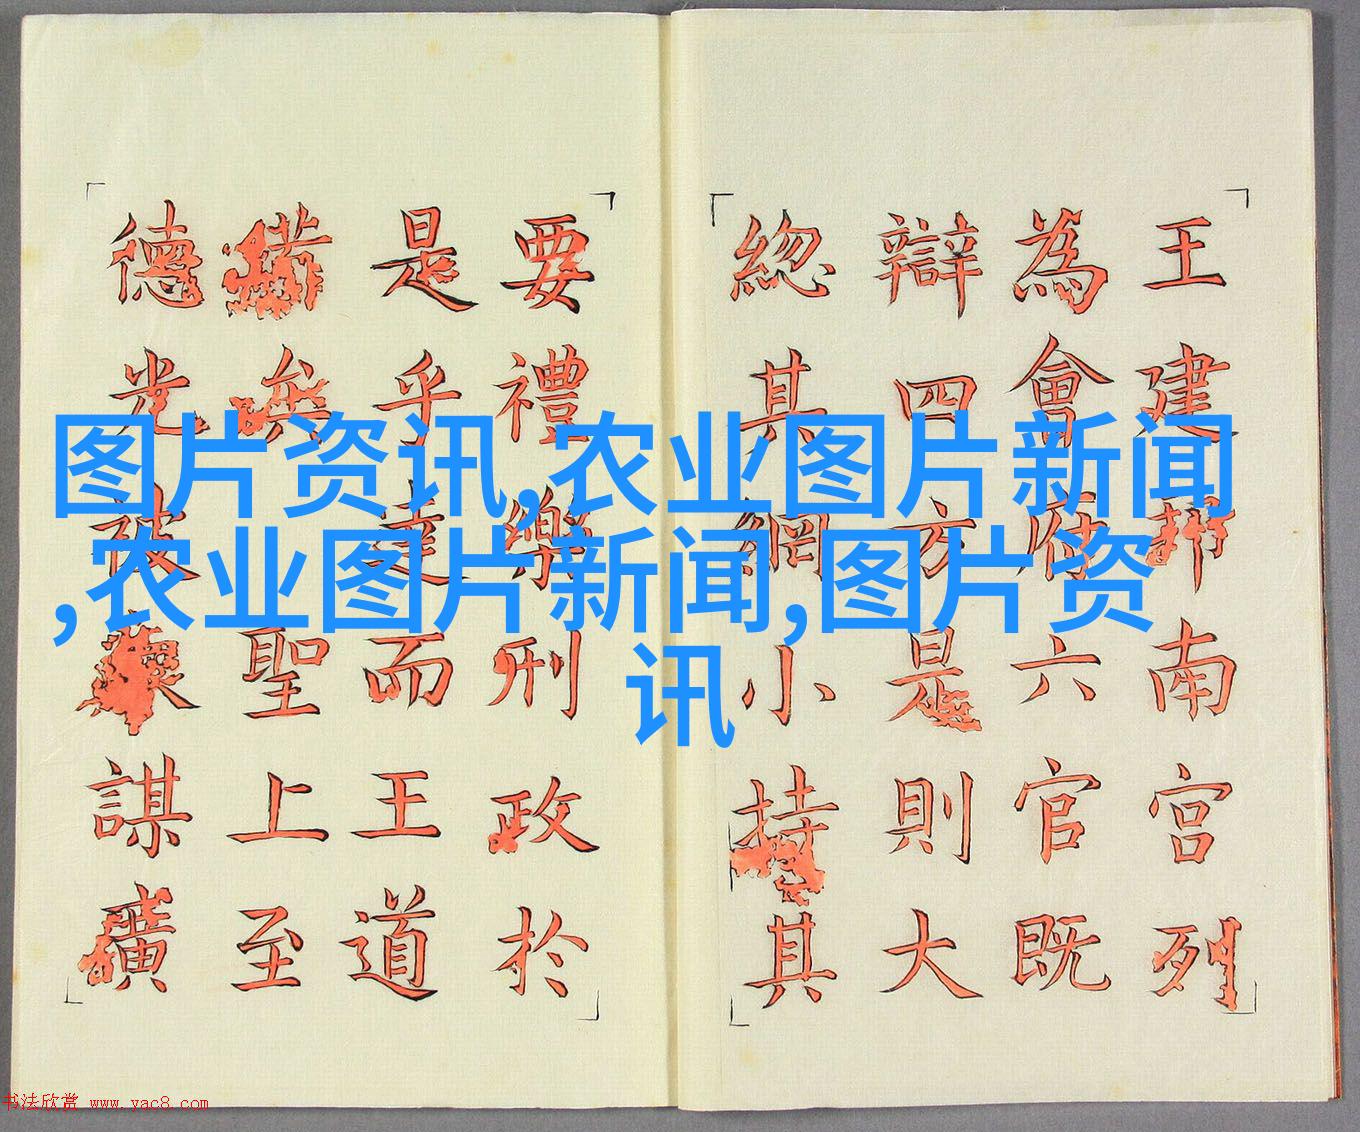 王建邦南宮列
為會府六官既
辯四方是則大
緫其網小持其
要禮樂刑政於
是乎達而王道
聖上至
德光被謀
图片资讯,农业图片新闻
,农业图片新闻,图片资
讯
书法欣赏 www.yac8.com